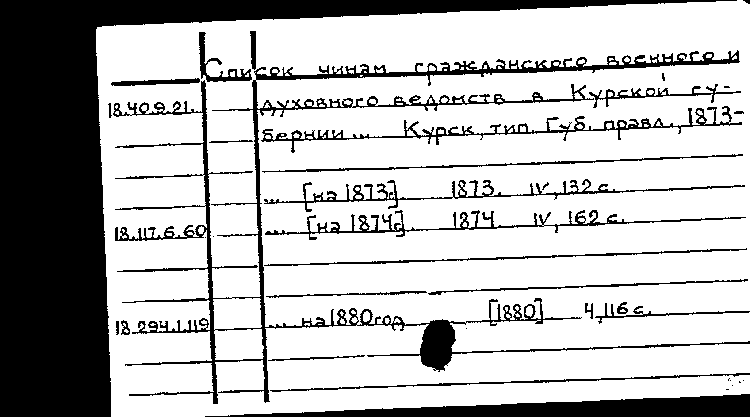 Список чинам гражданского, военного и
18.40.9.21. духовного ведомств в Курской гу-
бернии... Курск, тип. Губ. правл., 1873-
... [на 1873г]. 1873. IV, 132 с.
18.117.6.60 ... [на 1874г]. 1874. IV, 162 с.
18.294.1.119 ... на 1880 год [1880]. 4, 116 с.